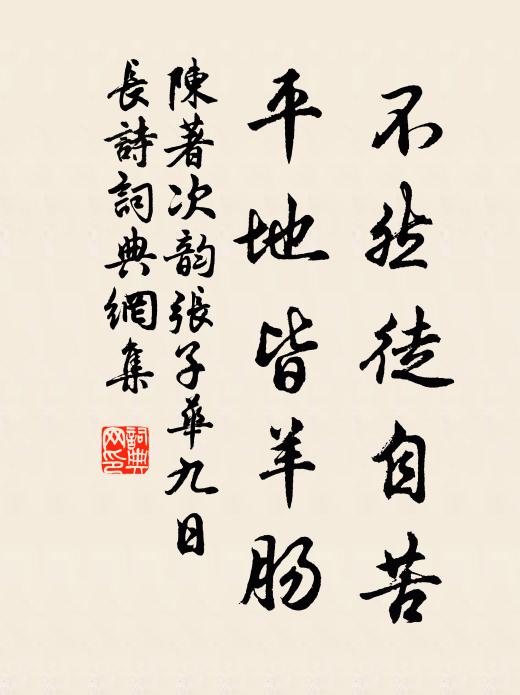 不然徒自苦
平地皆羊肠
陳著次韵張子華九日
長詩詞典網集
詞典
网印